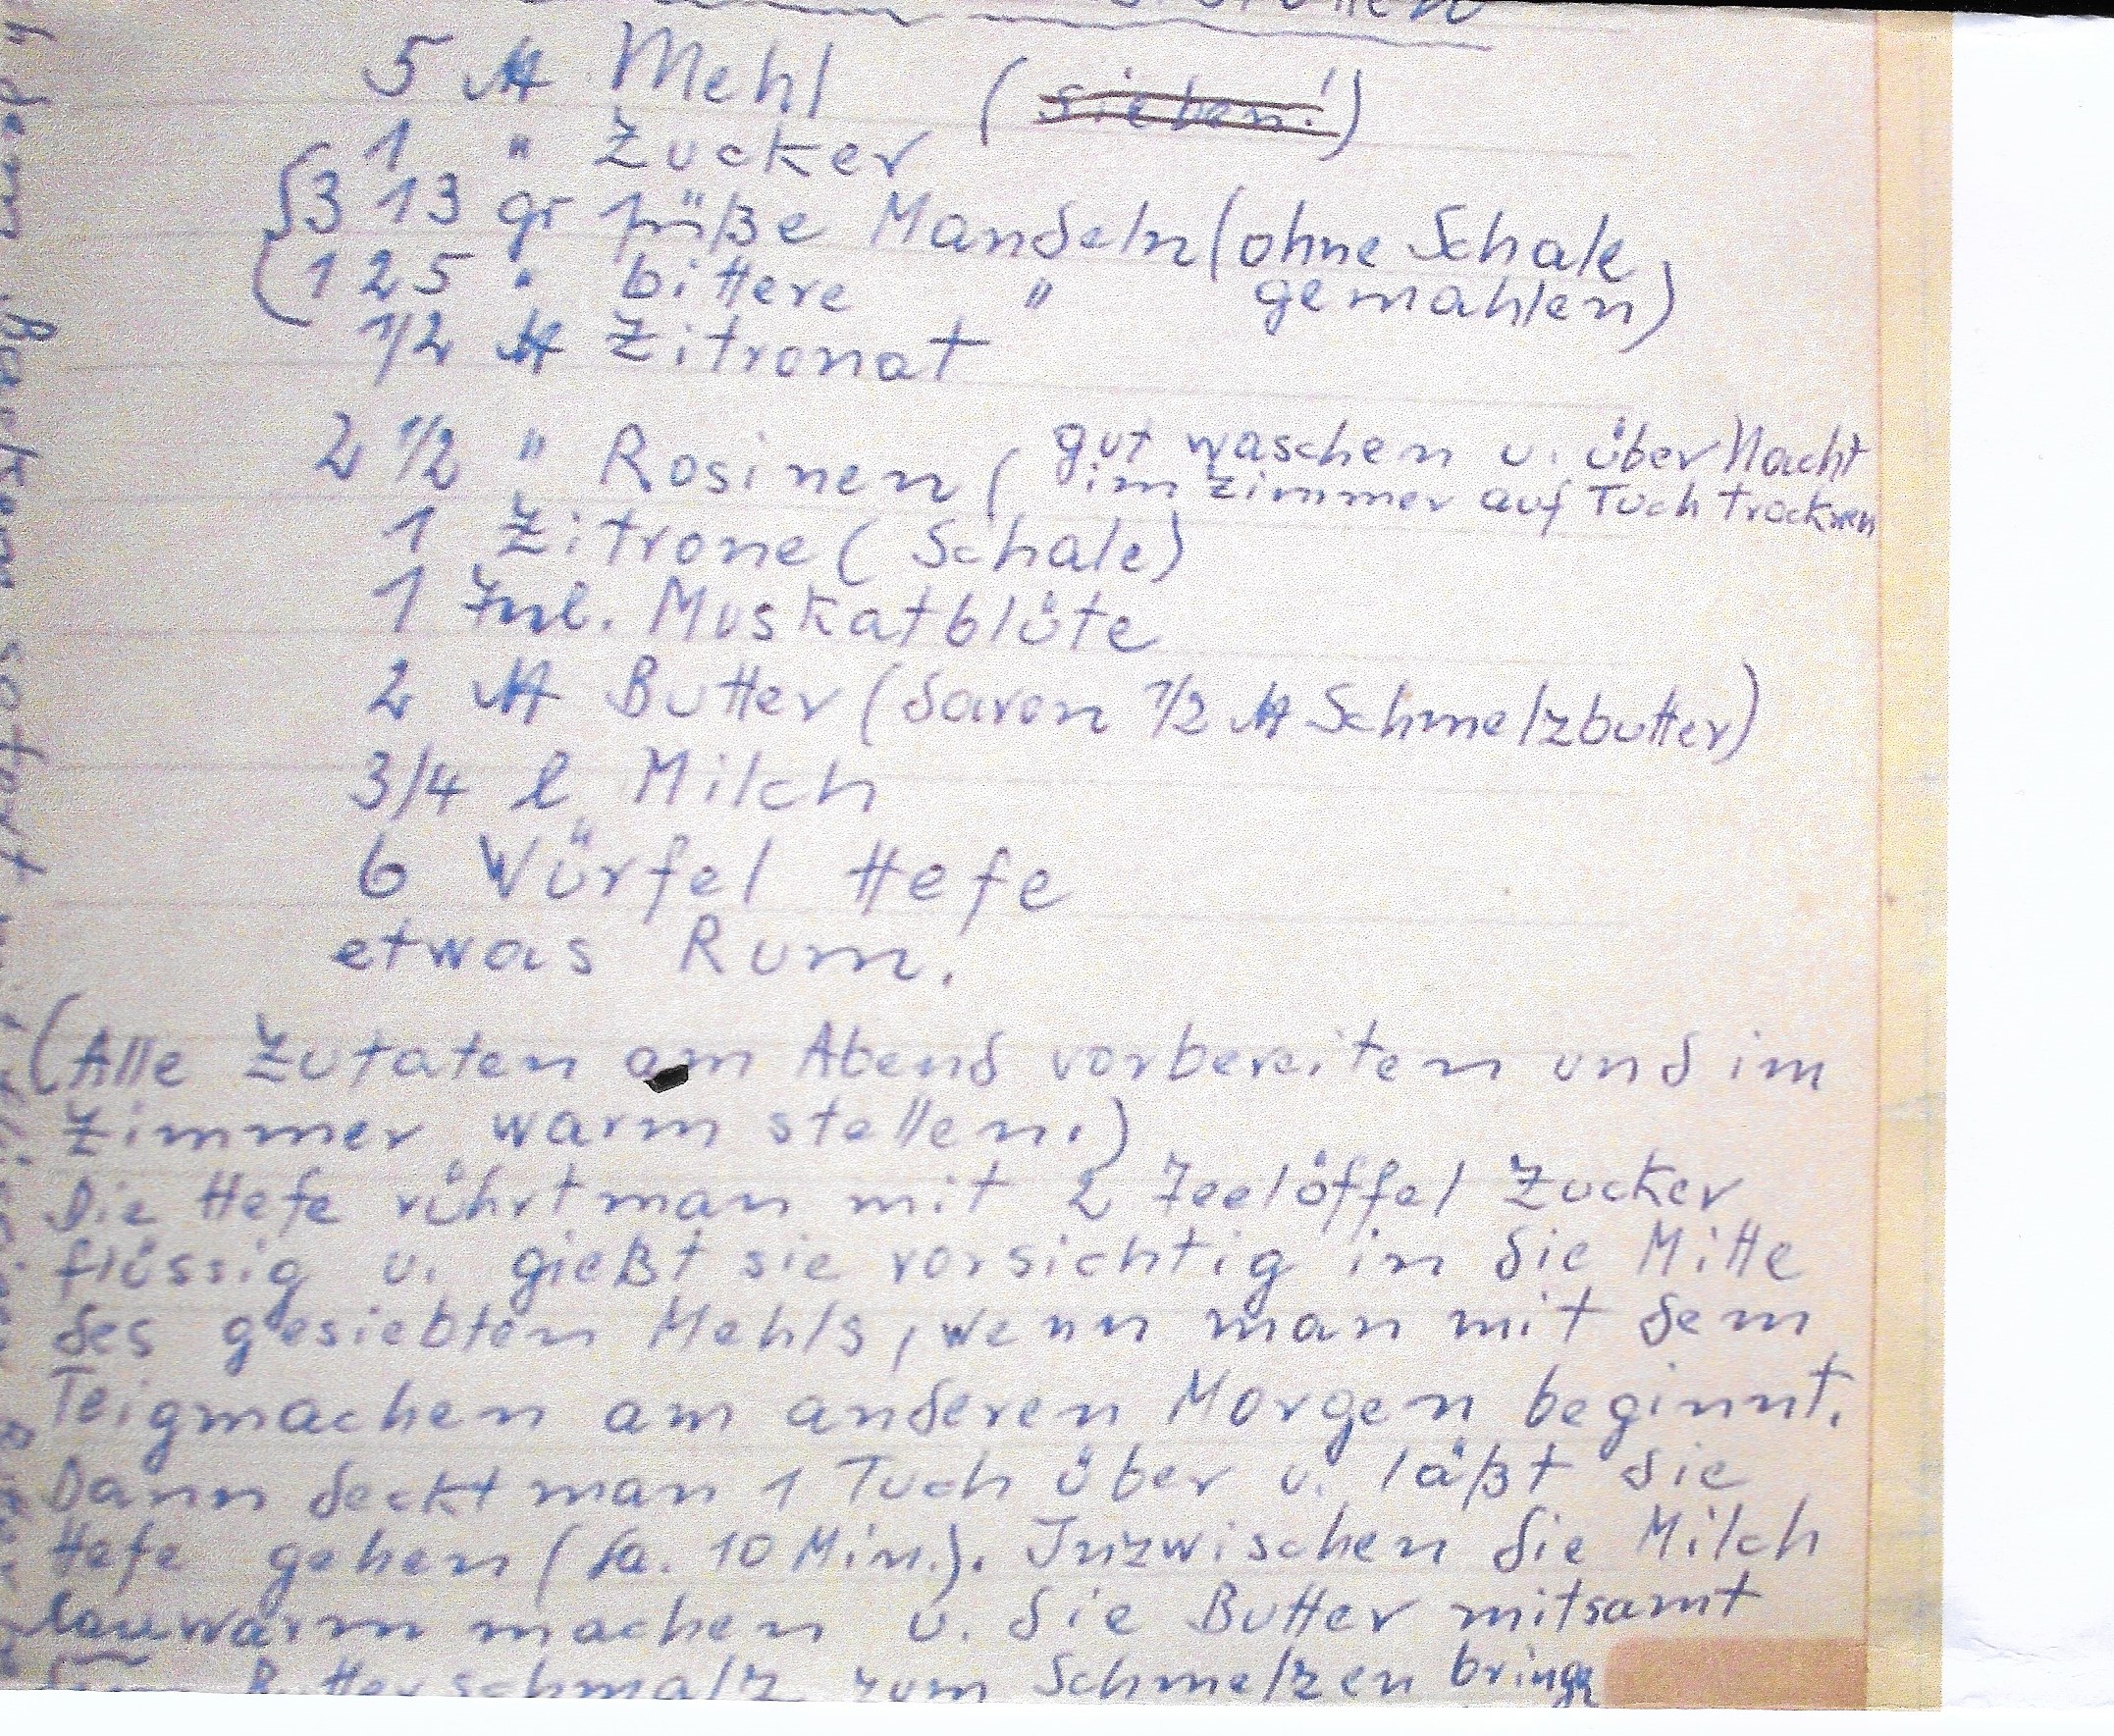 5 ℔ Mehl (sieben!)
1 " Zucker
313 gr süße Mandeln (ohne Schale,
125 " bittere " gemahlen)
1/2 ℔ Zitronat
2 1/2 " Rosinen ( gut waschen u. über Nacht
im Zimmer auf Tuch trocknen
1 Zitrone ( Schale)
1 Tnl. Muskatblüte
2 ℔ Butter (davon 1/2 ℔ Schmelzbutter)
3/4 l Milch
6 Würfel Hefe
etwas Rum.
(Alle Zutaten am Abend vorbereiten und im
Zimmer warm stellen.)
Die Hefe rührt man mit 2 Teelöffel Zucker
flüssig u. gießt sie vorsichtig in die Mitte
des gesiebten Mehls, wenn man mit dem
Teigmachen am anderen Morgen beginnt.
Dann deckt man 1 Tuch über u. läßt die
Hefe gehen (ca. 10 Min.). Inzwischen die Milch
lauwarm machen u. die Butter mitsamt
dem Butterschmalz zum Schmelzen bring